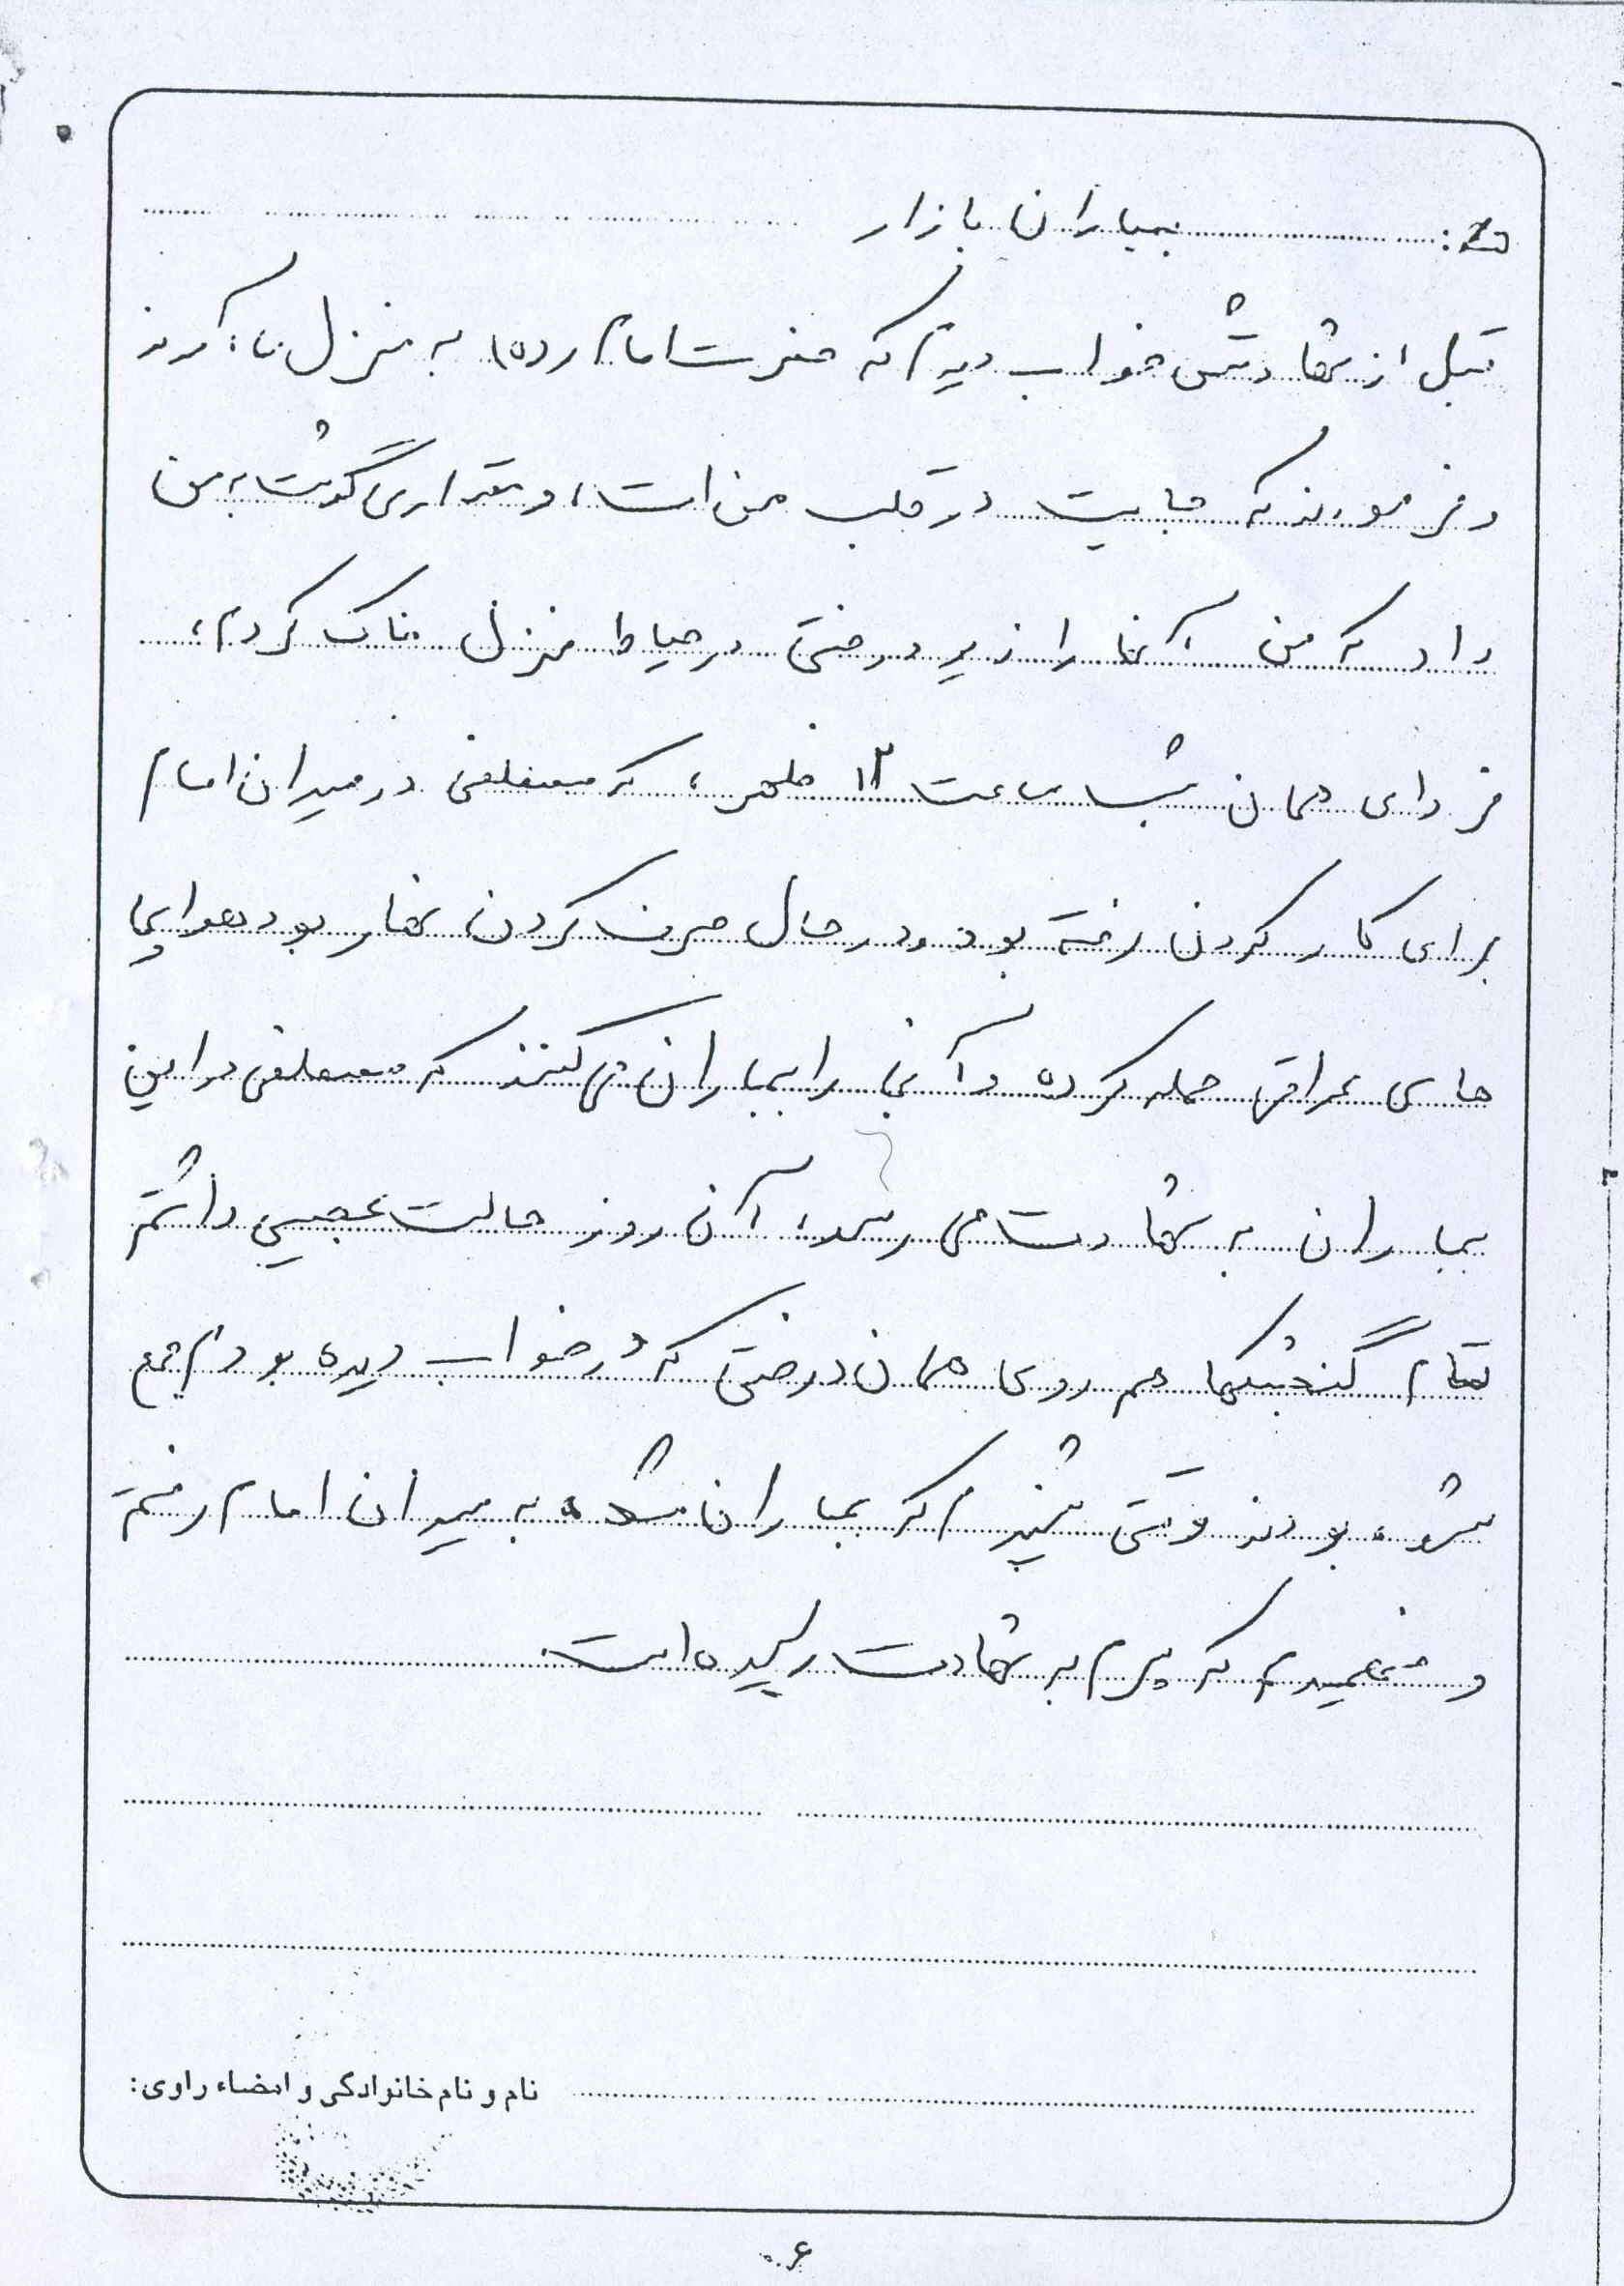 بمباران بازار
قبل از شهادتش خواب دیدم که حضرت امام (ره) به منزل ما آمدند
و فرمودند که جایت در قلب من است، و مقداری گوشت به من
داد که من آنها را زیر درختی در حیاط منزل خاک کردم،
فردای همان شب ساعت ۱۲ ظهر، که مصطفی در میدان امام
برای کار کردن رفته بود و در حال صرف کردن نهار بود هواپیما
های عراقی حمله کرده و آنجا را بمباران می کنند که مصطفی در این
بمباران به شهادت می رسد، آن روز حالت عجیبی داشتم
تمام گنجشکها هم روی همان درختی که در خواب دیده بودم جمع
شده بودند وقتی شنیدم که بمباران شده به میدان امام رفتم
و فهمیدم که پسرم به شهادت رسیده است.
نام و نام خانوادگی و امضاء راوی:
۶